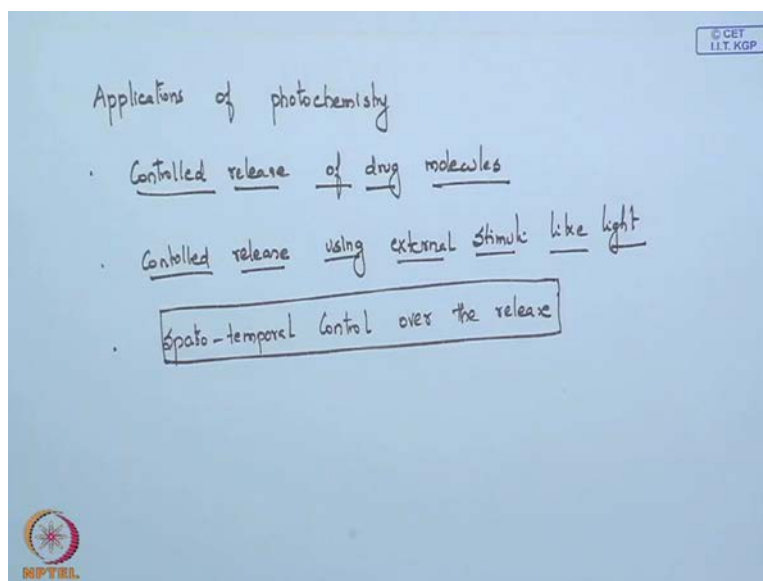 © CET
I.I.T. KGP
Applications of photochemistry
. Controlled release of drug molecules
. Contolled release using external stimuli like light
. Spato-temporal Control over the release
NPTEL